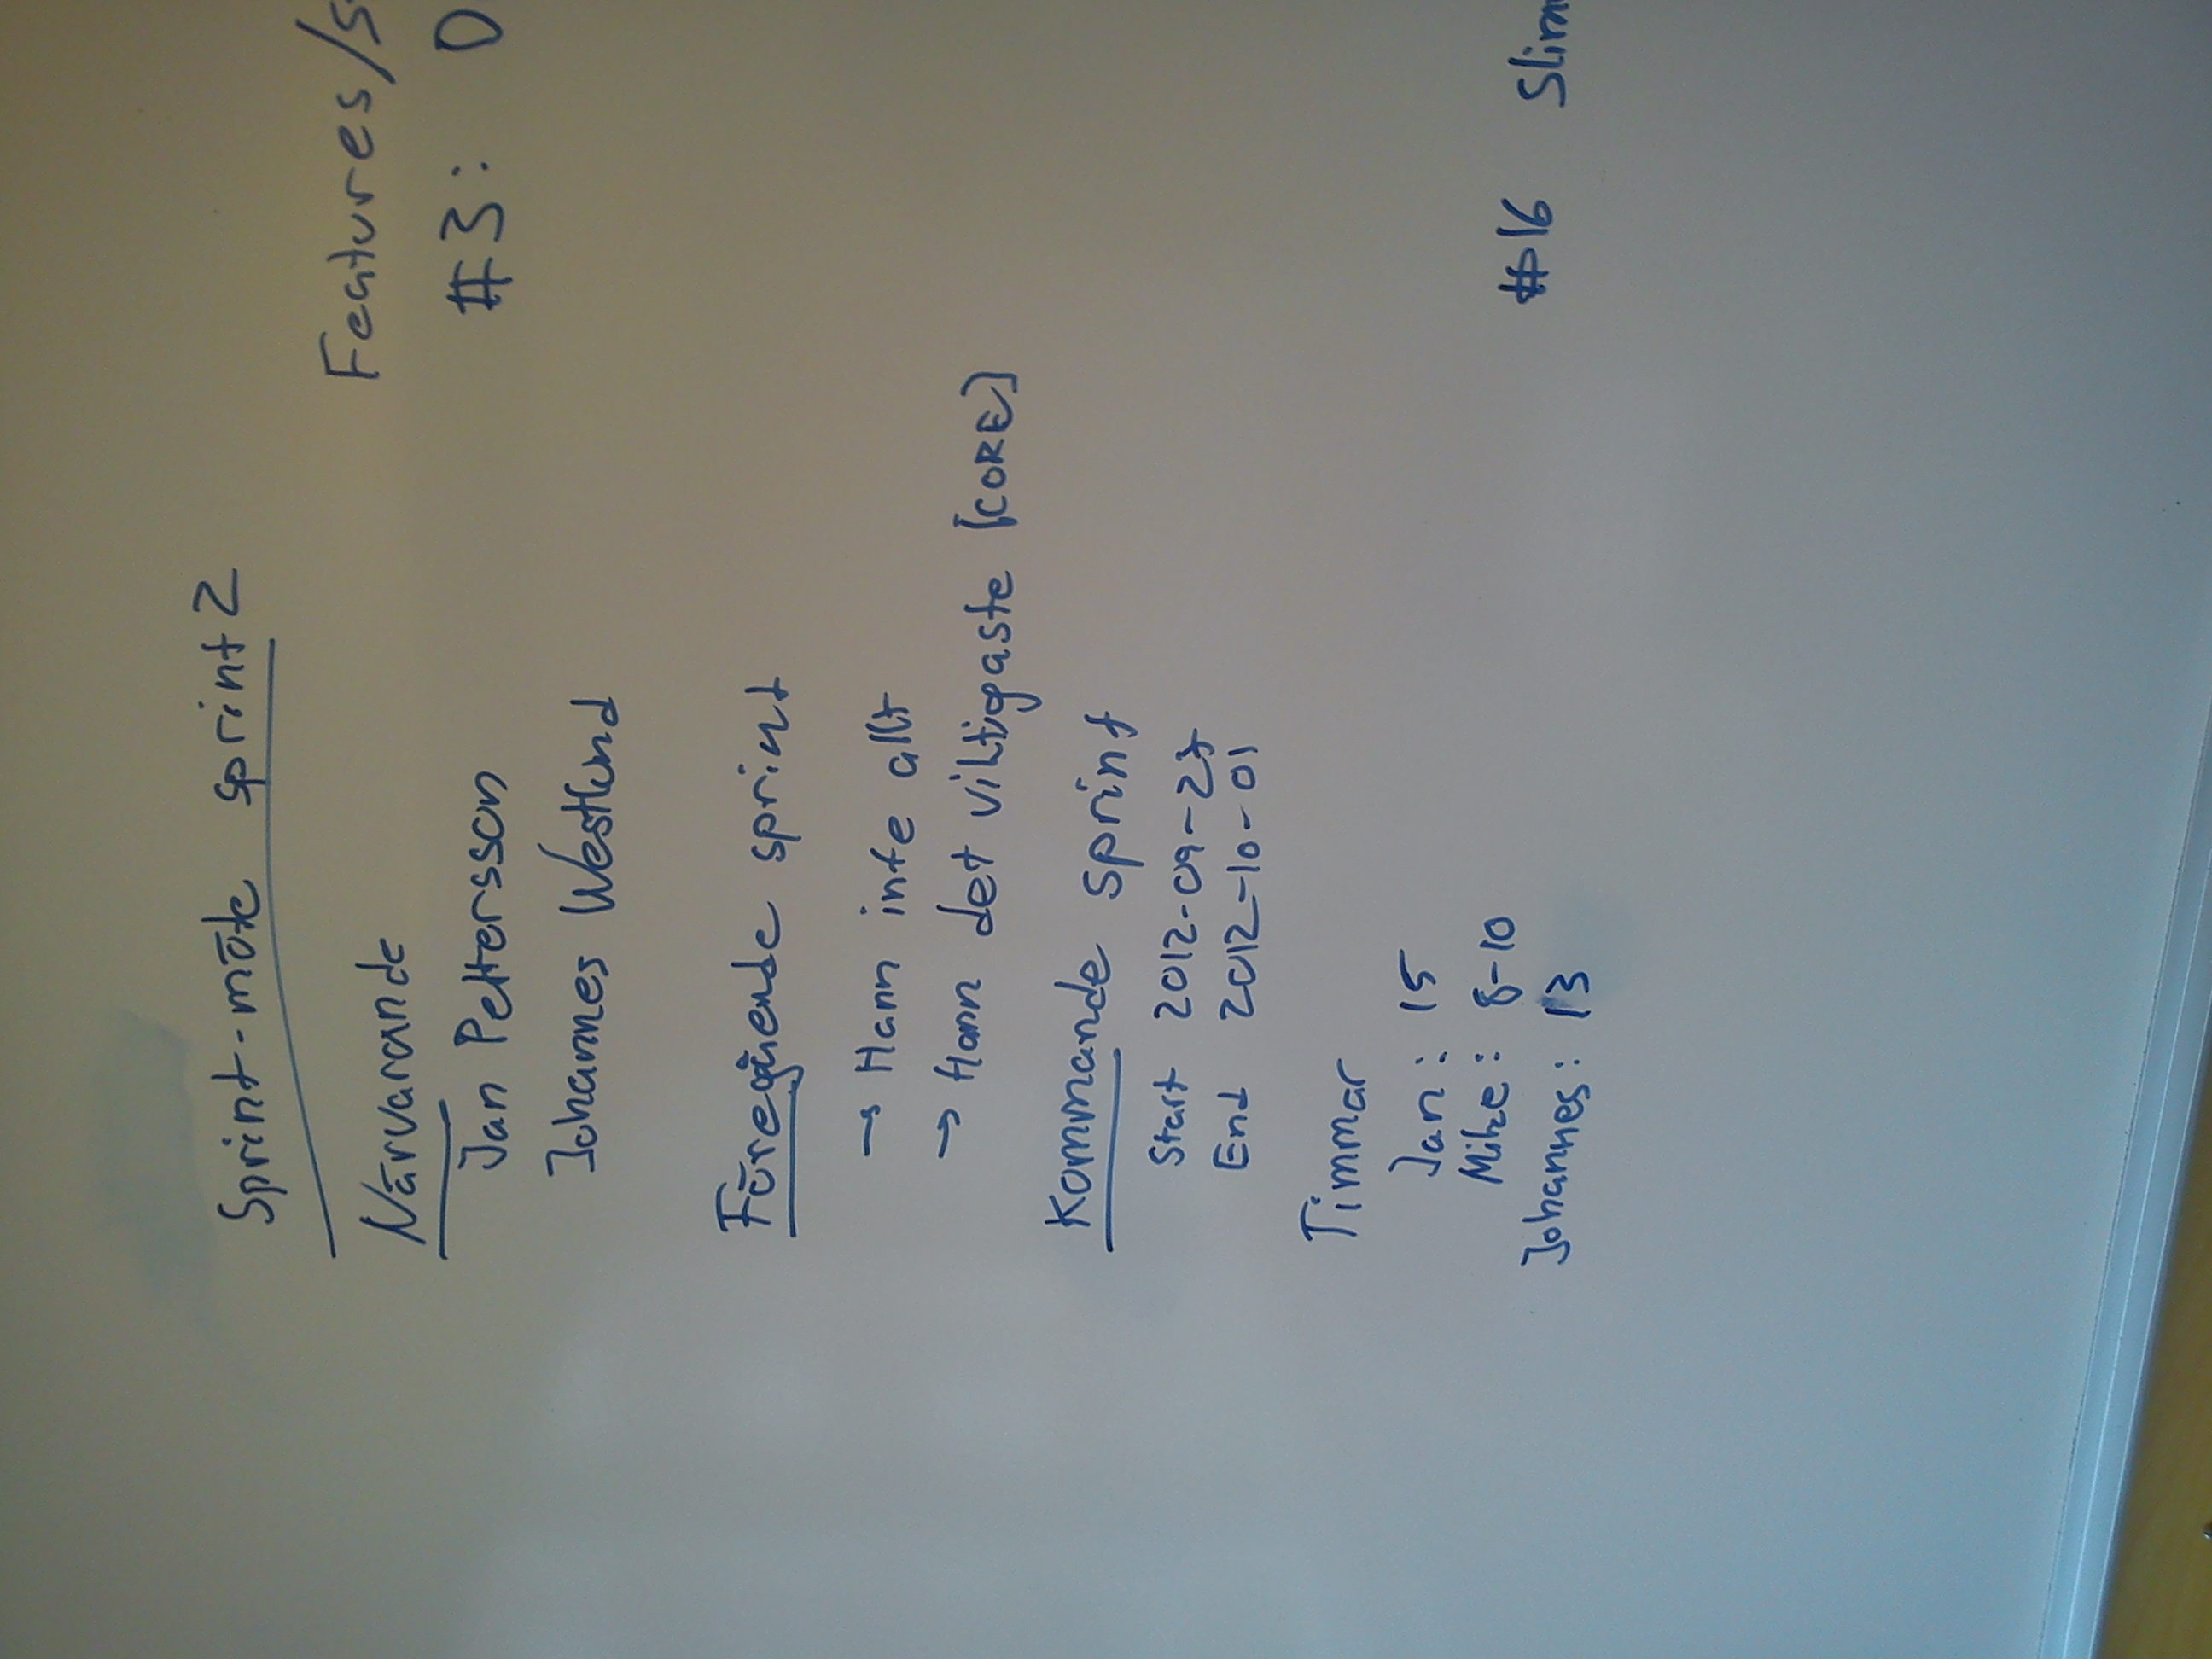 Sprint-möte sprint 2
Närvarande
Jan Pettersson
Johannes Westlund
Föregående sprint
→ Hann inte allt
→ Hann det viktigaste [CORE]
Kommande sprint
Start 2012-09-27
End 2012-10-01
Timmar
Jan: 15
Mike: 8-10
Johannes: 13
Features/s
#3: O
#16 Slim